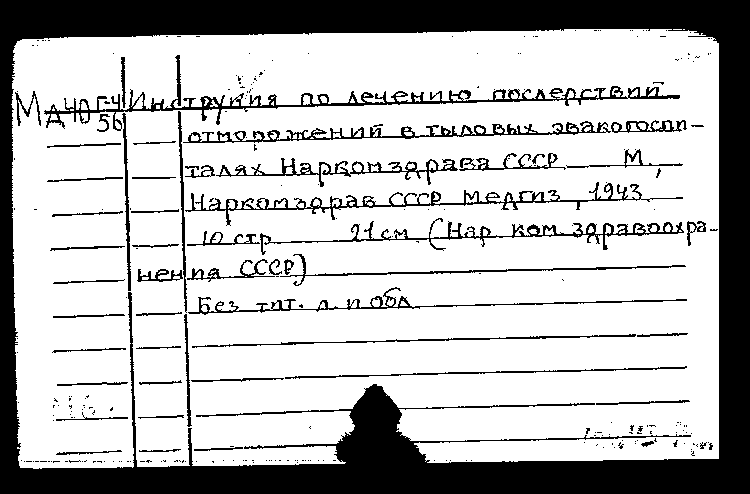 МА40 Г-4/56 Инструкция по лечению последствий
отморожений в тыловых эвакогоспи-
талях Наркомздрава СССР М.,
Наркомздрав СССР Медгиз, 1943
10 стр 21 см (Нар ком здравоохра-
нения СССР)
Без тит. л. и обл